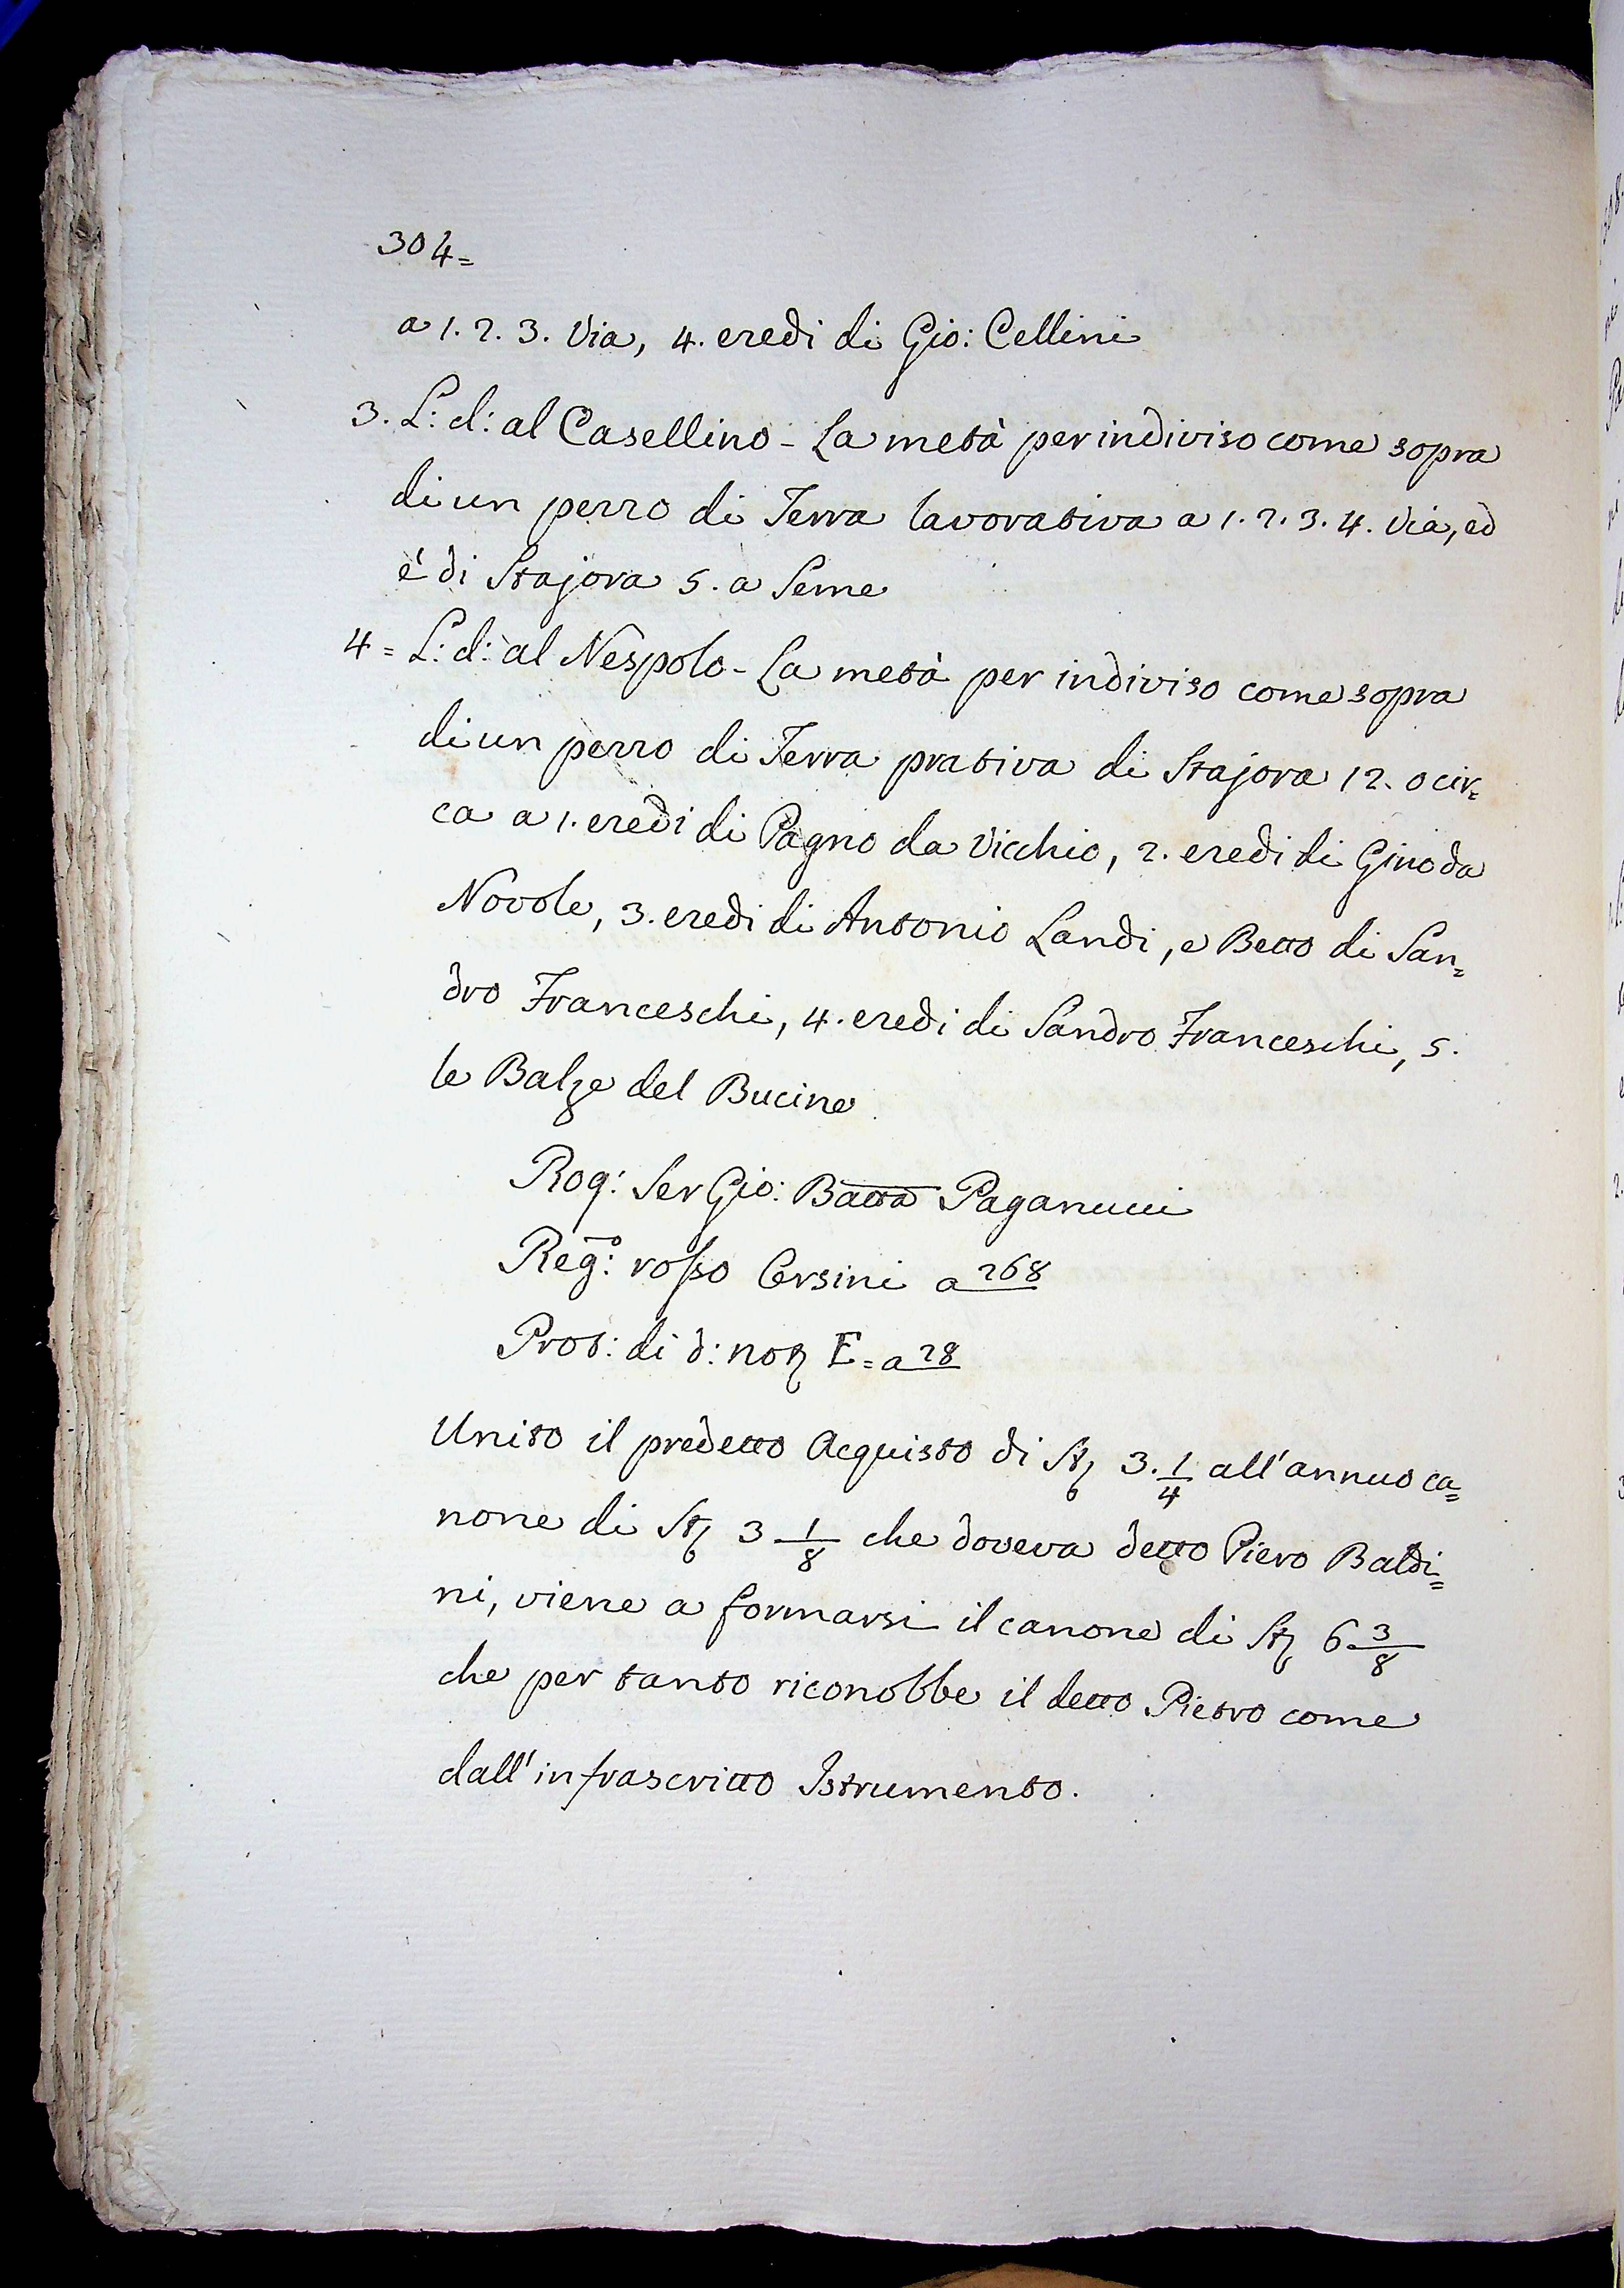 304=
a 1. 2. 3. Via, 4. eredi di Gio: Cellini
3. L: d: al Casellino - La metà per indiviso come sopra
di un pezzo di Terra lavorativa a 1. 2. 3. 4. Via, ed
è di Stajora 5. a Seme
4= L: d: al Nespolo - La metà per indiviso come sopra
di un pezzo di Terra prativa di Stajora 12. o cir=
ca a 1. eredi di Pagno da Vicchio, 2. eredi di Gino da
Novole, 3. eredi di Antonio Landi, e Betto di San=
dro Franceschi, 4. eredi di Sandro Franceschi, 5.
le Balze del Bucine
Rog: Ser Gio: Batta Paganucci
Reg:o rosso Corsini a 268
Prot: di d: not E= a 28
Unito il predetto Acquisto di St 3. 1/4 all'annuo ca=
none di St 3 1/8 che doveva detto Piero Baldi=
ni, viene a formarsi il canone di St 6 3/8
che per tanto riconobbe il detto Pietro come
dall'infrascritto Istrumento.